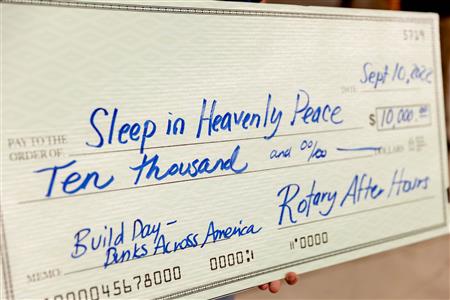 5719
DATE Sept 10, 2022
PAY TO THE
ORDER OF: Sleep in Heavenly Peace $ 10,000.00
Ten thousand and 00/00 DOLLARS
Build Day-
MEMO: Bunks Across America Rotary After Hours
0000045678000 000 0000